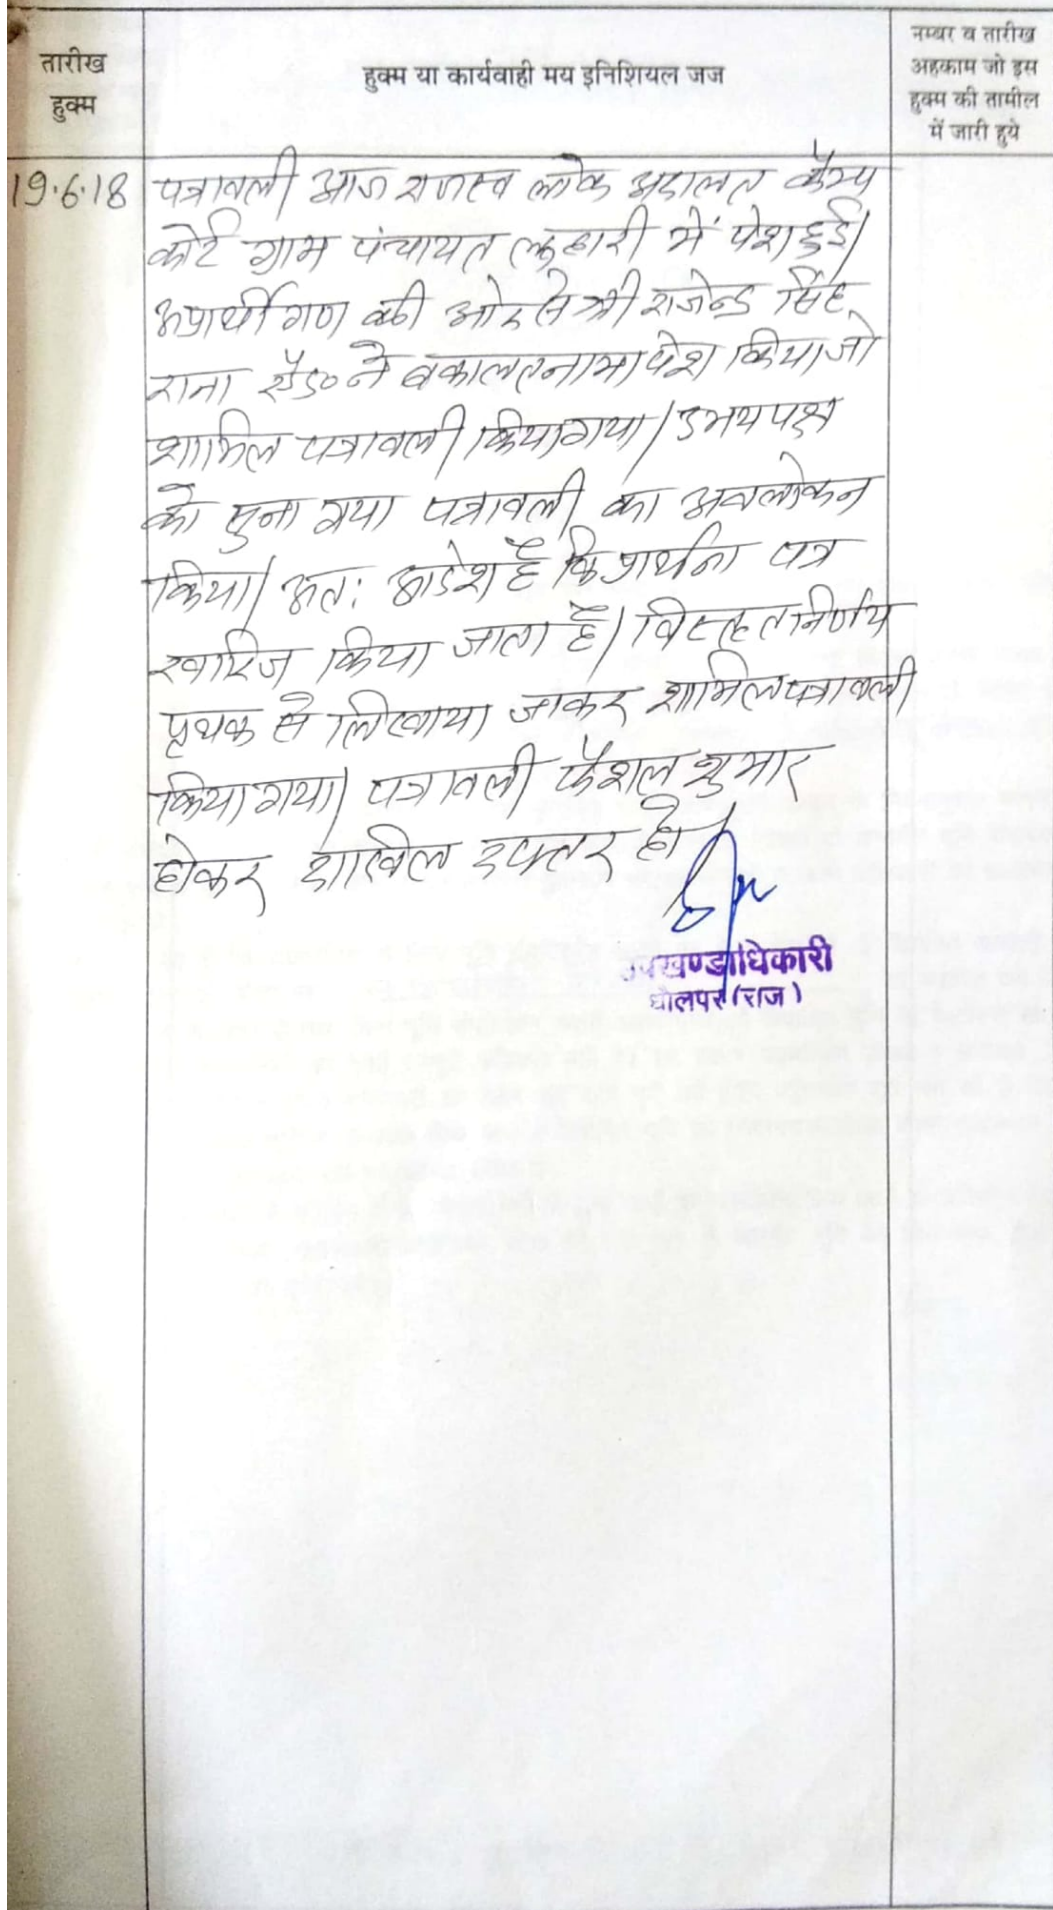 तारीख
हुक्म
हुक्म या कार्यवाही मय इनिशियल जज
नम्बर व तारीख
अहकाम जो इस
हुक्म की तामील
में जारी हुये
19.6.18
पत्रावली आज राजस्व लोक अदालत कैम्प
कोर्ट ग्राम पंचायत लुहारी में पेश हुई।
अप्रार्थीगण की ओर से श्री राजेन्द्र सिंह
राना एैड० ने वकालतनामा पेश किया जो
शामिल पत्रावली किया गया। उभयपक्ष
को सुना गया पत्रावली का अवलोकन
किया। अतः आदेश है कि प्रार्थना पत्र
खारिज किया जाता है। विस्तृत निर्णय
पृथक से लिखाया जाकर शामिल पत्रावली
किया गया। पत्रावली फैशल शुमार
होकर दाखिल दफ्तर हो।
उपखण्डाधिकारी
धौलपुर (राज)